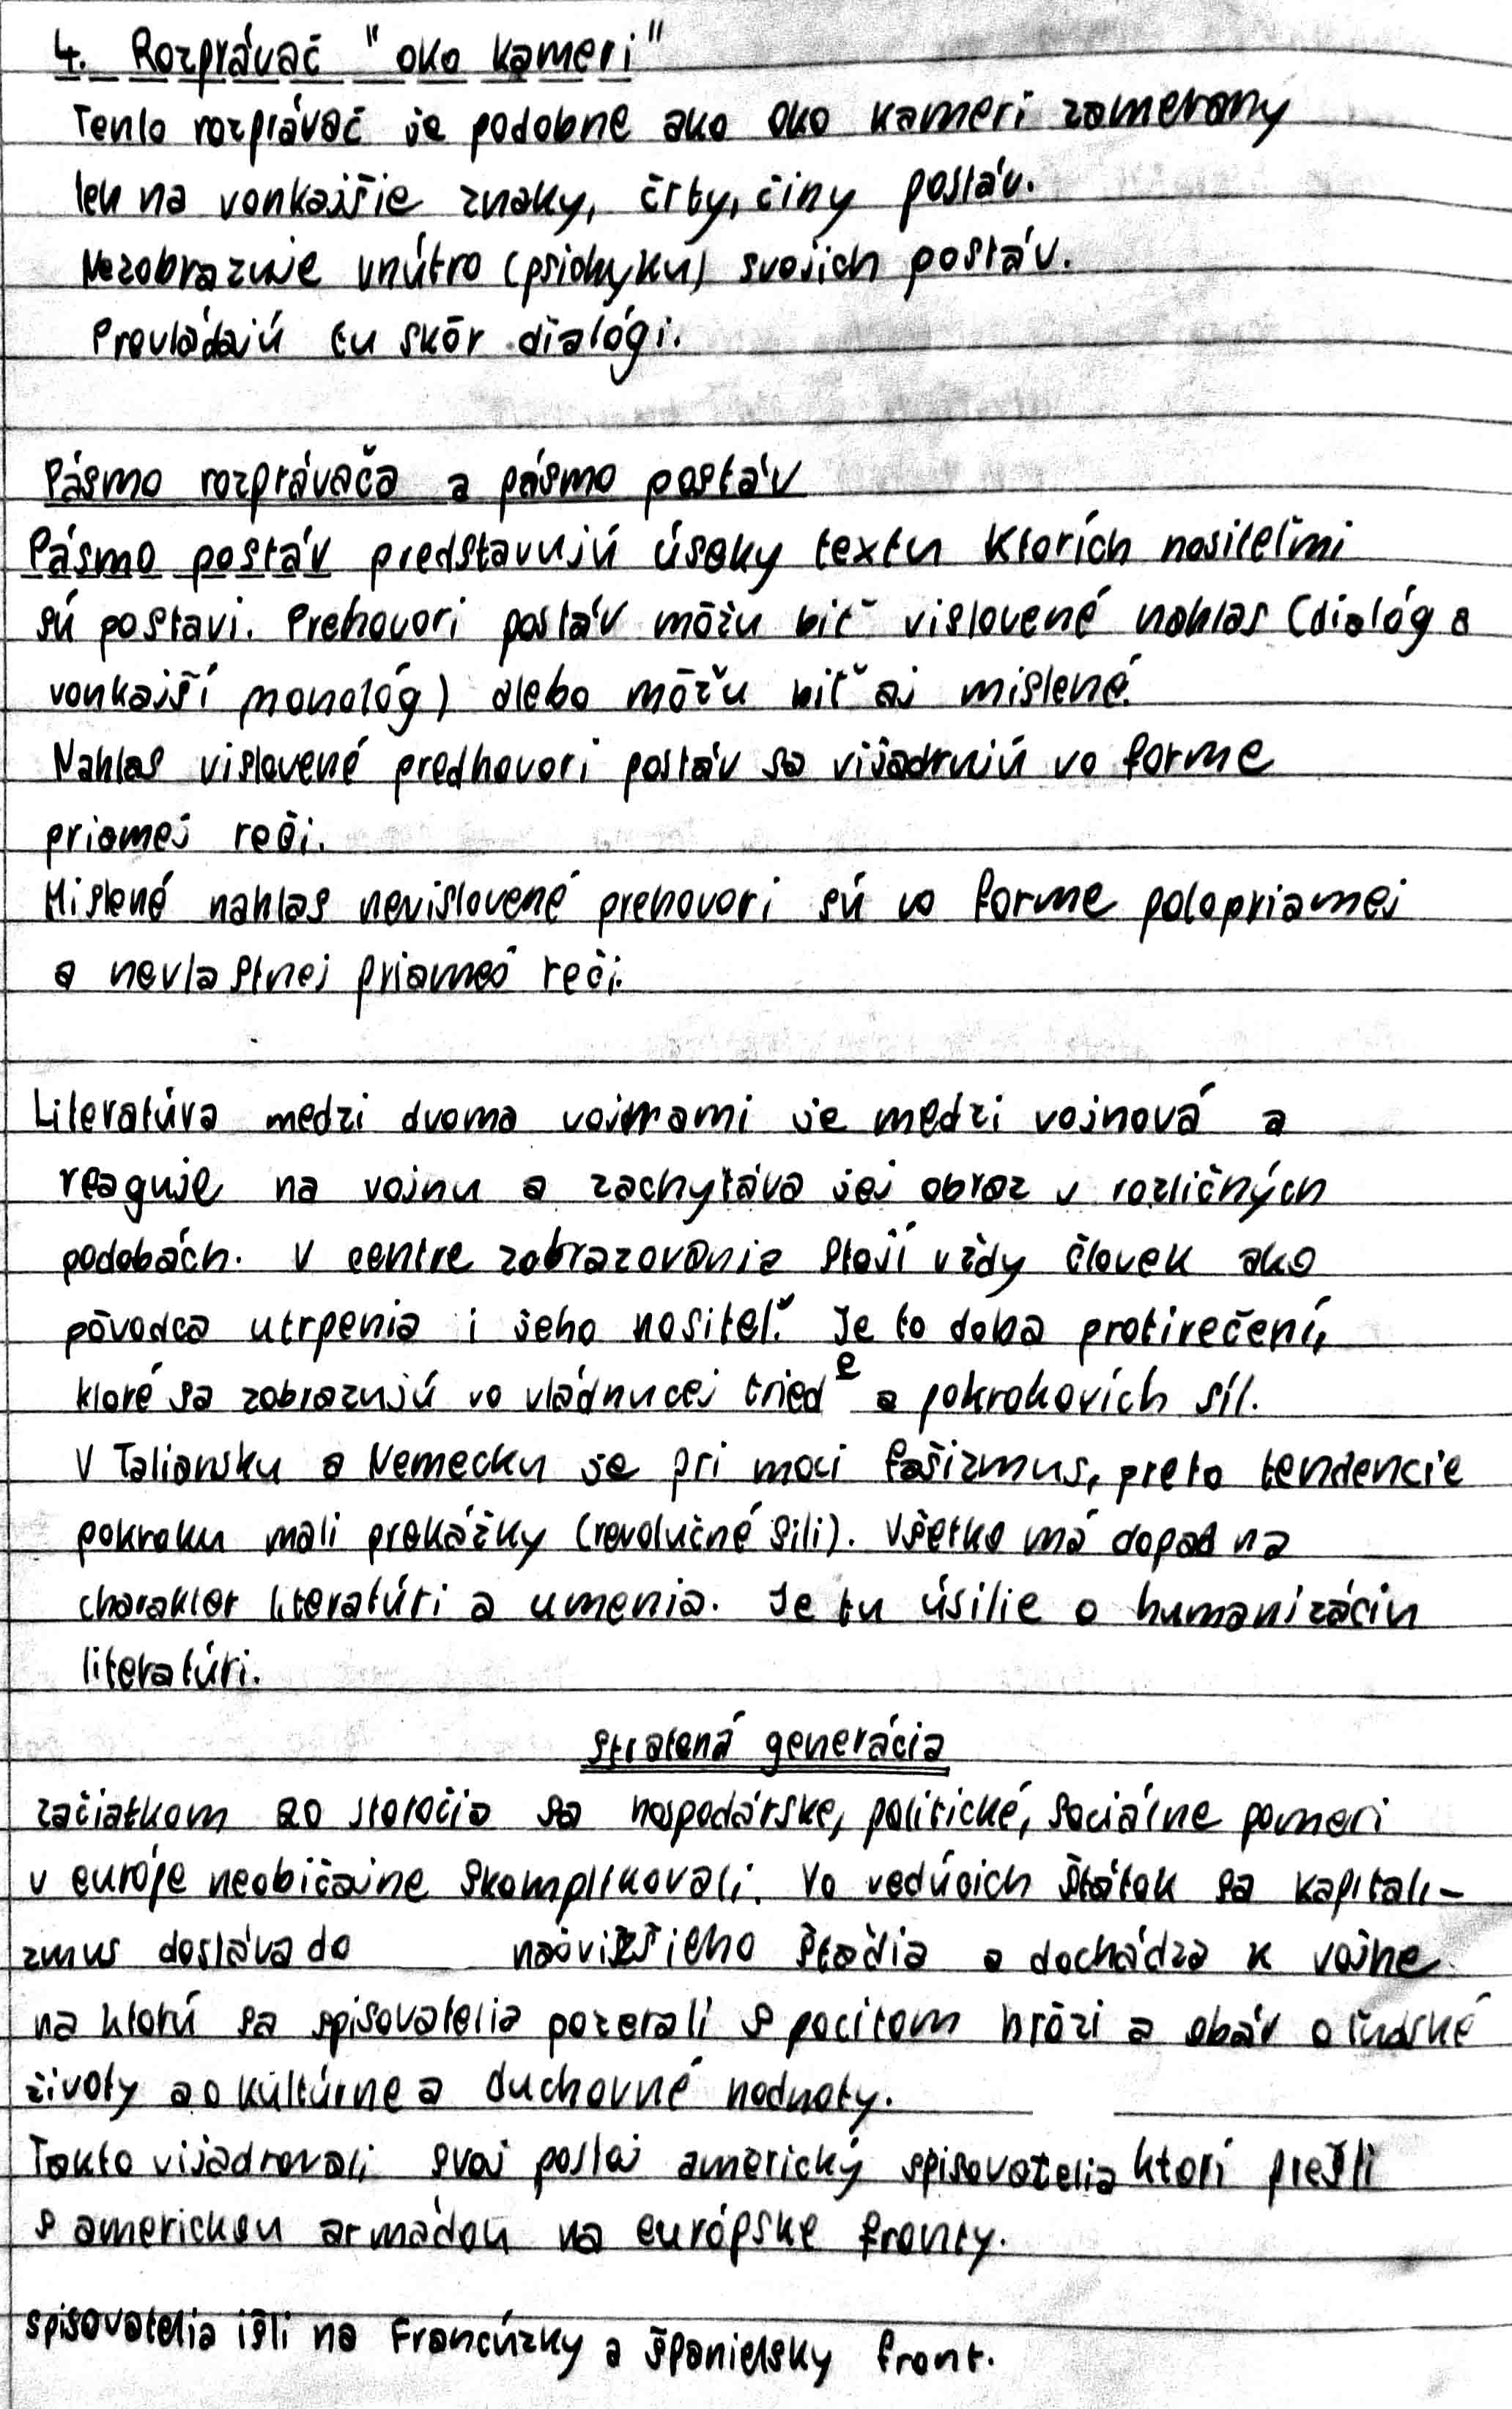 4. Rozprávač "oko kameri"
Tento rozprávač je podobne ako oko kameri zamerany
len na vonkajšie znaky, črty, činy postáv.
Nezobrazuje vnútro (psichyku) svojich postáv.
Prevládajú tu skôr dialógi.
Pásmo rozprávača a pásmo postáv
Pásmo postáv predstavujú úseky textu ktorích nositeľmi
sú postavi. Prehovori postáv môžu biť vislovené nahlas (dialóg a
vonkajší monológ) alebo môžu biť aj mislené.
Nahlas vislovené predhovori postáv sa vijadrujú vo forme
priamej reči.
Mislené nahlas nevislovené prehovori sú vo forme polopriamej
a nevlastnej priamej reči.
Literatúra medzi dvoma vojnami je medzi vojnová a
reaguje na vojnu a zachytáva jej obraz v rozličných
podobách. V centre zobrazovania stojí vždy človek ako
pôvodca utrpenia i jeho nositeľ. Je to doba protirečení,
ktoré sa zobrazujú vo vládnucej triede a pokrokovích síl.
V Taliansku a Nemecku je pri moci fašizmus, preto tendencie
pokroku mali prekážky (revolučné sili). Všetko má dopad na
charakter literatúri a umenia. Je tu úsilie o humanizáciu
literatúri.
Stratená generácia
začiatkom 20 storočia sa hospodárske, politické, sociálne pomeri
v európe neobičajne skomplikovali. Vo vedúcich štátok sa kapitali-
zmus dostáva do najvižšieho štádia a dochádza k vojne
na ktorú sa spisovatelia pozerali s pocitom hrôzi a obáv o ľudské
životy a o kultúrne a duchovné hodnoty.
Takto vijadrovali svoj postoj americký spisovatelia ktorí prešli
s americkou armádou na európske fronty.
spisovatelia išli na Francúzky a španielsky front.